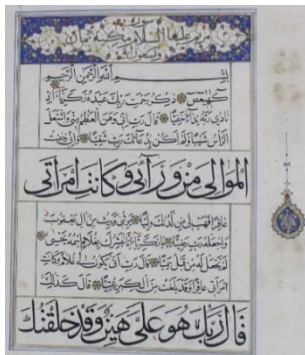 سورة مريم عليها السلام مكية ثمان
بسم الله الرحمن الرحيم
كهيعص ذكر رحمت ربك عبده زكريا إذ
نادى ربه نداء خفيا قال رب إني وهن العظم مني واشتعل
الرأس شيبا ولم أكن بدعائك رب شقيا وإني خفت
الموالي من ورائي وكانت امرأتي
عاقرا فهب لي من لدنك وليا يرثني ويرث من آل يعقوب
واجعله رب رضيا يا زكريا إنا نبشرك بغلام اسمه يحيى
لم نجعل له من قبل سميا قال رب أنى يكون لي غلام وكانت
امرأتي عاقرا وقد بلغت من الكبر عتيا قال كذلك
قال ربك هو علي هين وقد خلقتك